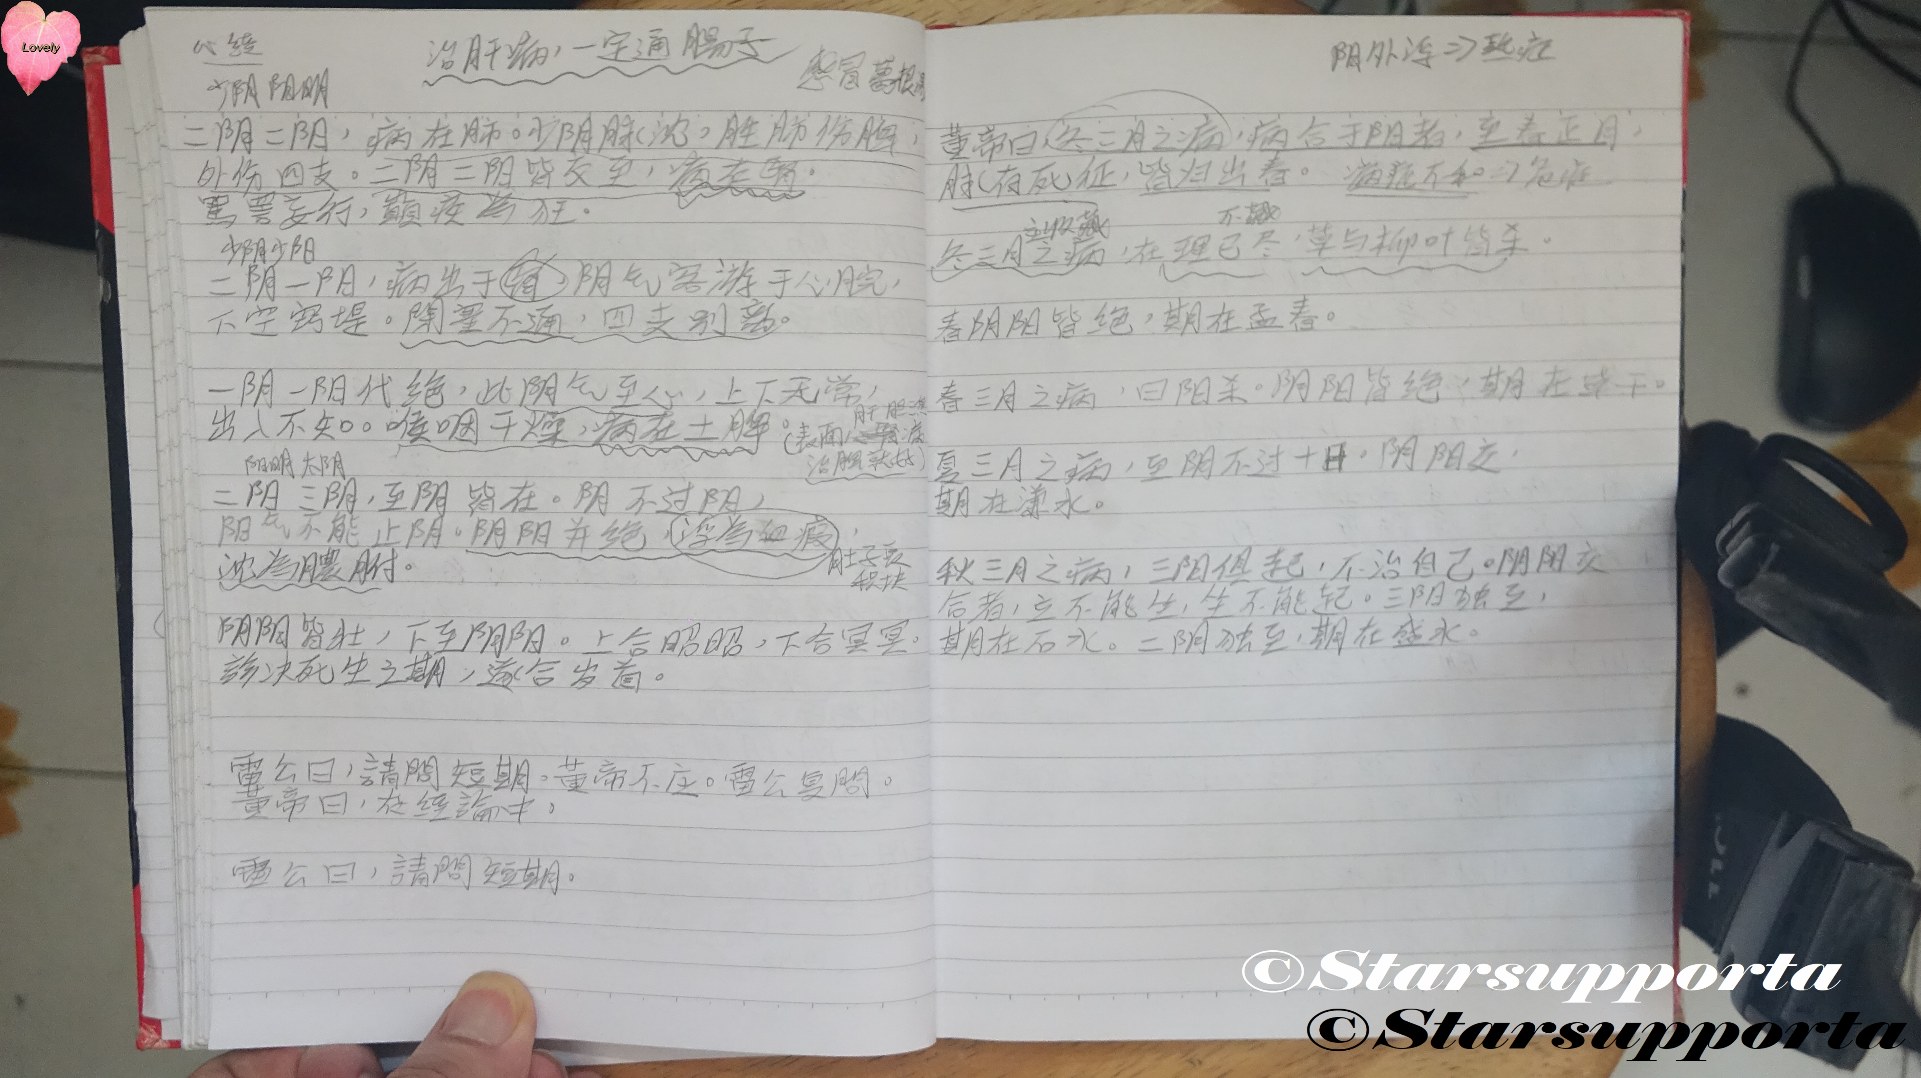 Lovely
心经
治肝病，一定通腸子
感冒葛根湯
少阴 阳明
二阴二阳，病在肺。少阴脉沈。胜肺伤脾，
外伤四支。二阴二阳皆交至，病在腎。
罵詈妄行，顛疾為狂。
少阴少阳
二阴一阳，病出于腎，阴气客游于心脘，
下空窍堤。閉塞不通，四支别离。
一阴一阳代绝，此阴气至心，上下无常，
出入不知。喉咽干燥，病在土脾。
(表面
治脾就好)
阳明 太阴
二阳三阴，至阴皆在。阴不过阳，
阳气不能止阴。阴阳并绝，浮為血瘕，
沈為膿胕。
肚子裏
积块
阴阳皆壮，下至阴阳。上合昭昭，下合冥冥。
診决死生之期，遂合岁首。
雷公曰，請問短期。黄帝不应。雷公复問。
黄帝曰，在經論中，
雷公曰，請問短期。
阳外浮⇒热症
黄帝曰，冬三月之病，病合于阳者，至春正月，
脉有死征，皆归出春。
⇒危症
主收藏
不藏
冬三月之病，在理已尽，草与柳叶皆杀。
春阴阳皆绝，期在孟春。
春三月之病，曰阳杀。阴阳皆绝，期在草干。
夏三月之病，至阴不过十日，阴阳交，
期在溓水。
秋三月之病，三阳俱起，不治自己。阴阳交
合者，立不能坐，坐不能起。三阳独至，
期在石水。二阴独至，期在盛水。
©Starsupporta
©Starsupporta